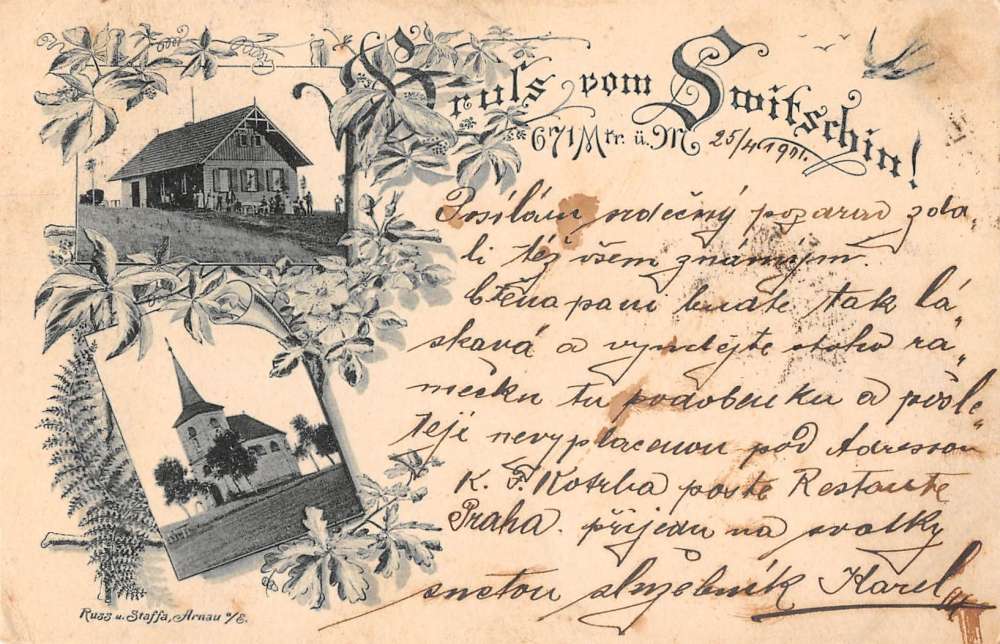 Gruß vom Switschin!
671 Mtr. ü. M
25/4 1901.
Posílám srdečný pozdrav zda-
li též všem známým.
ctěná paní buďte tak lá„
skavá a vyndejte toho rá„
mečku tu podobenku a pošle
te ji nevyplacenou pod Adressou
K. F. Kotrba poste Restante
Praha. přijedu na svatky
služebník Karel
Russ u. Staffa, Arnau a/E.